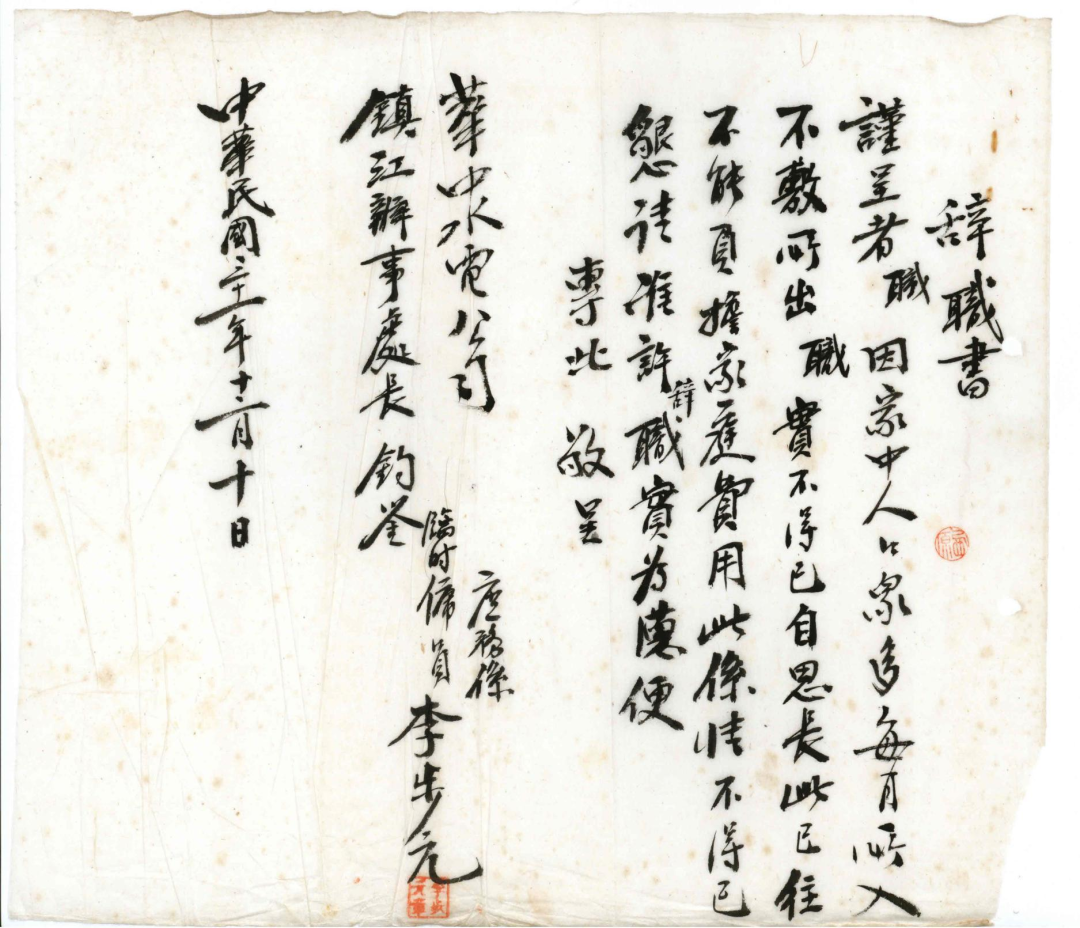 辭職書
謹呈者職因家中人口眾多每月所入
不敷所出職實不得已自思長此已往
不能負擔家庭費用此係情不得已
懇請准許辭職實為德便
專此敬呈
華中水電公司
鎮江辦事處長鈞鉴
庶務係
臨時傭員李步元
中華民國三十一年十二月十日